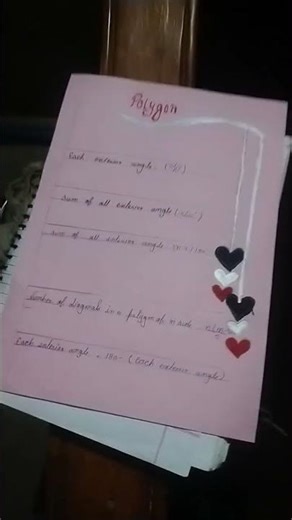 Polygon
Each exterior angle
Sum of all exterior angle
Sum of all exterior angle
Number of diagonals in a polygon of n side
Each interior angle = 180 - (Each exterior angle)